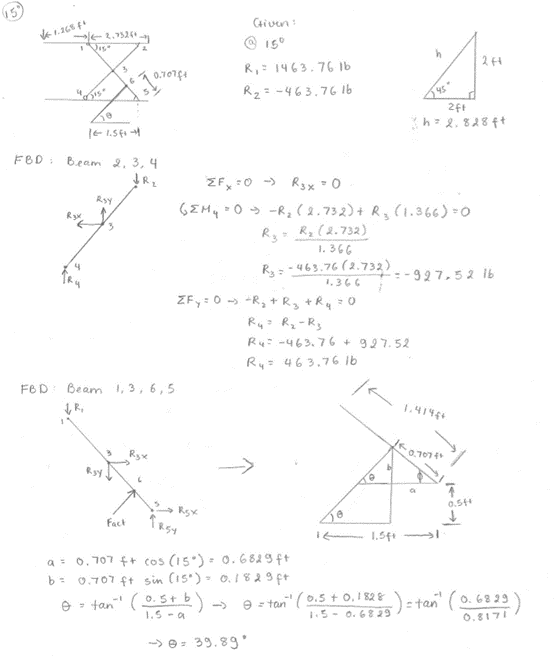 15°
1.268 ft
2.732ft
1
15°
2
3
6
0.707ft
4
15°
5
θ
1.5ft
Given:
@ 15°
R1 = 1463.76 lb
R2 = -463.76 lb
h
2ft
45°
2ft
h = 2.828ft
FBD: Beam 2, 3, 4
R2
R3y
R3x
3
4
R4
ΣFx = 0 → R3x = 0
ΣM4 = 0 → -R2 (2.732) + R3 (1.366) = 0
R3 = R2 (2.732) / 1.366
R3 = -463.76 (2.732) / 1.366 = -927.52 lb
ΣFy = 0 → -R2 + R3 + R4 = 0
R4 = R2 - R3
R4 = -463.76 + 927.52
R4 = 463.76 lb
FBD: Beam 1, 3, 6, 5
R1
1
3
R3x
R3y
6
5
R5x
Fact
R5y
1.414ft
0.707ft
b
θ
a
ϕ
0.5ft
θ
1.5ft
a = 0.707 ft cos (15°) = 0.6829 ft
b = 0.707 ft sin (15°) = 0.1829 ft
θ = tan⁻¹ (0.5 + b / 1.5 - a) → θ = tan⁻¹ (0.5 + 0.1828 / 1.5 - 0.6829) = tan⁻¹ (0.6829 / 0.8171)
→ θ = 39.89°